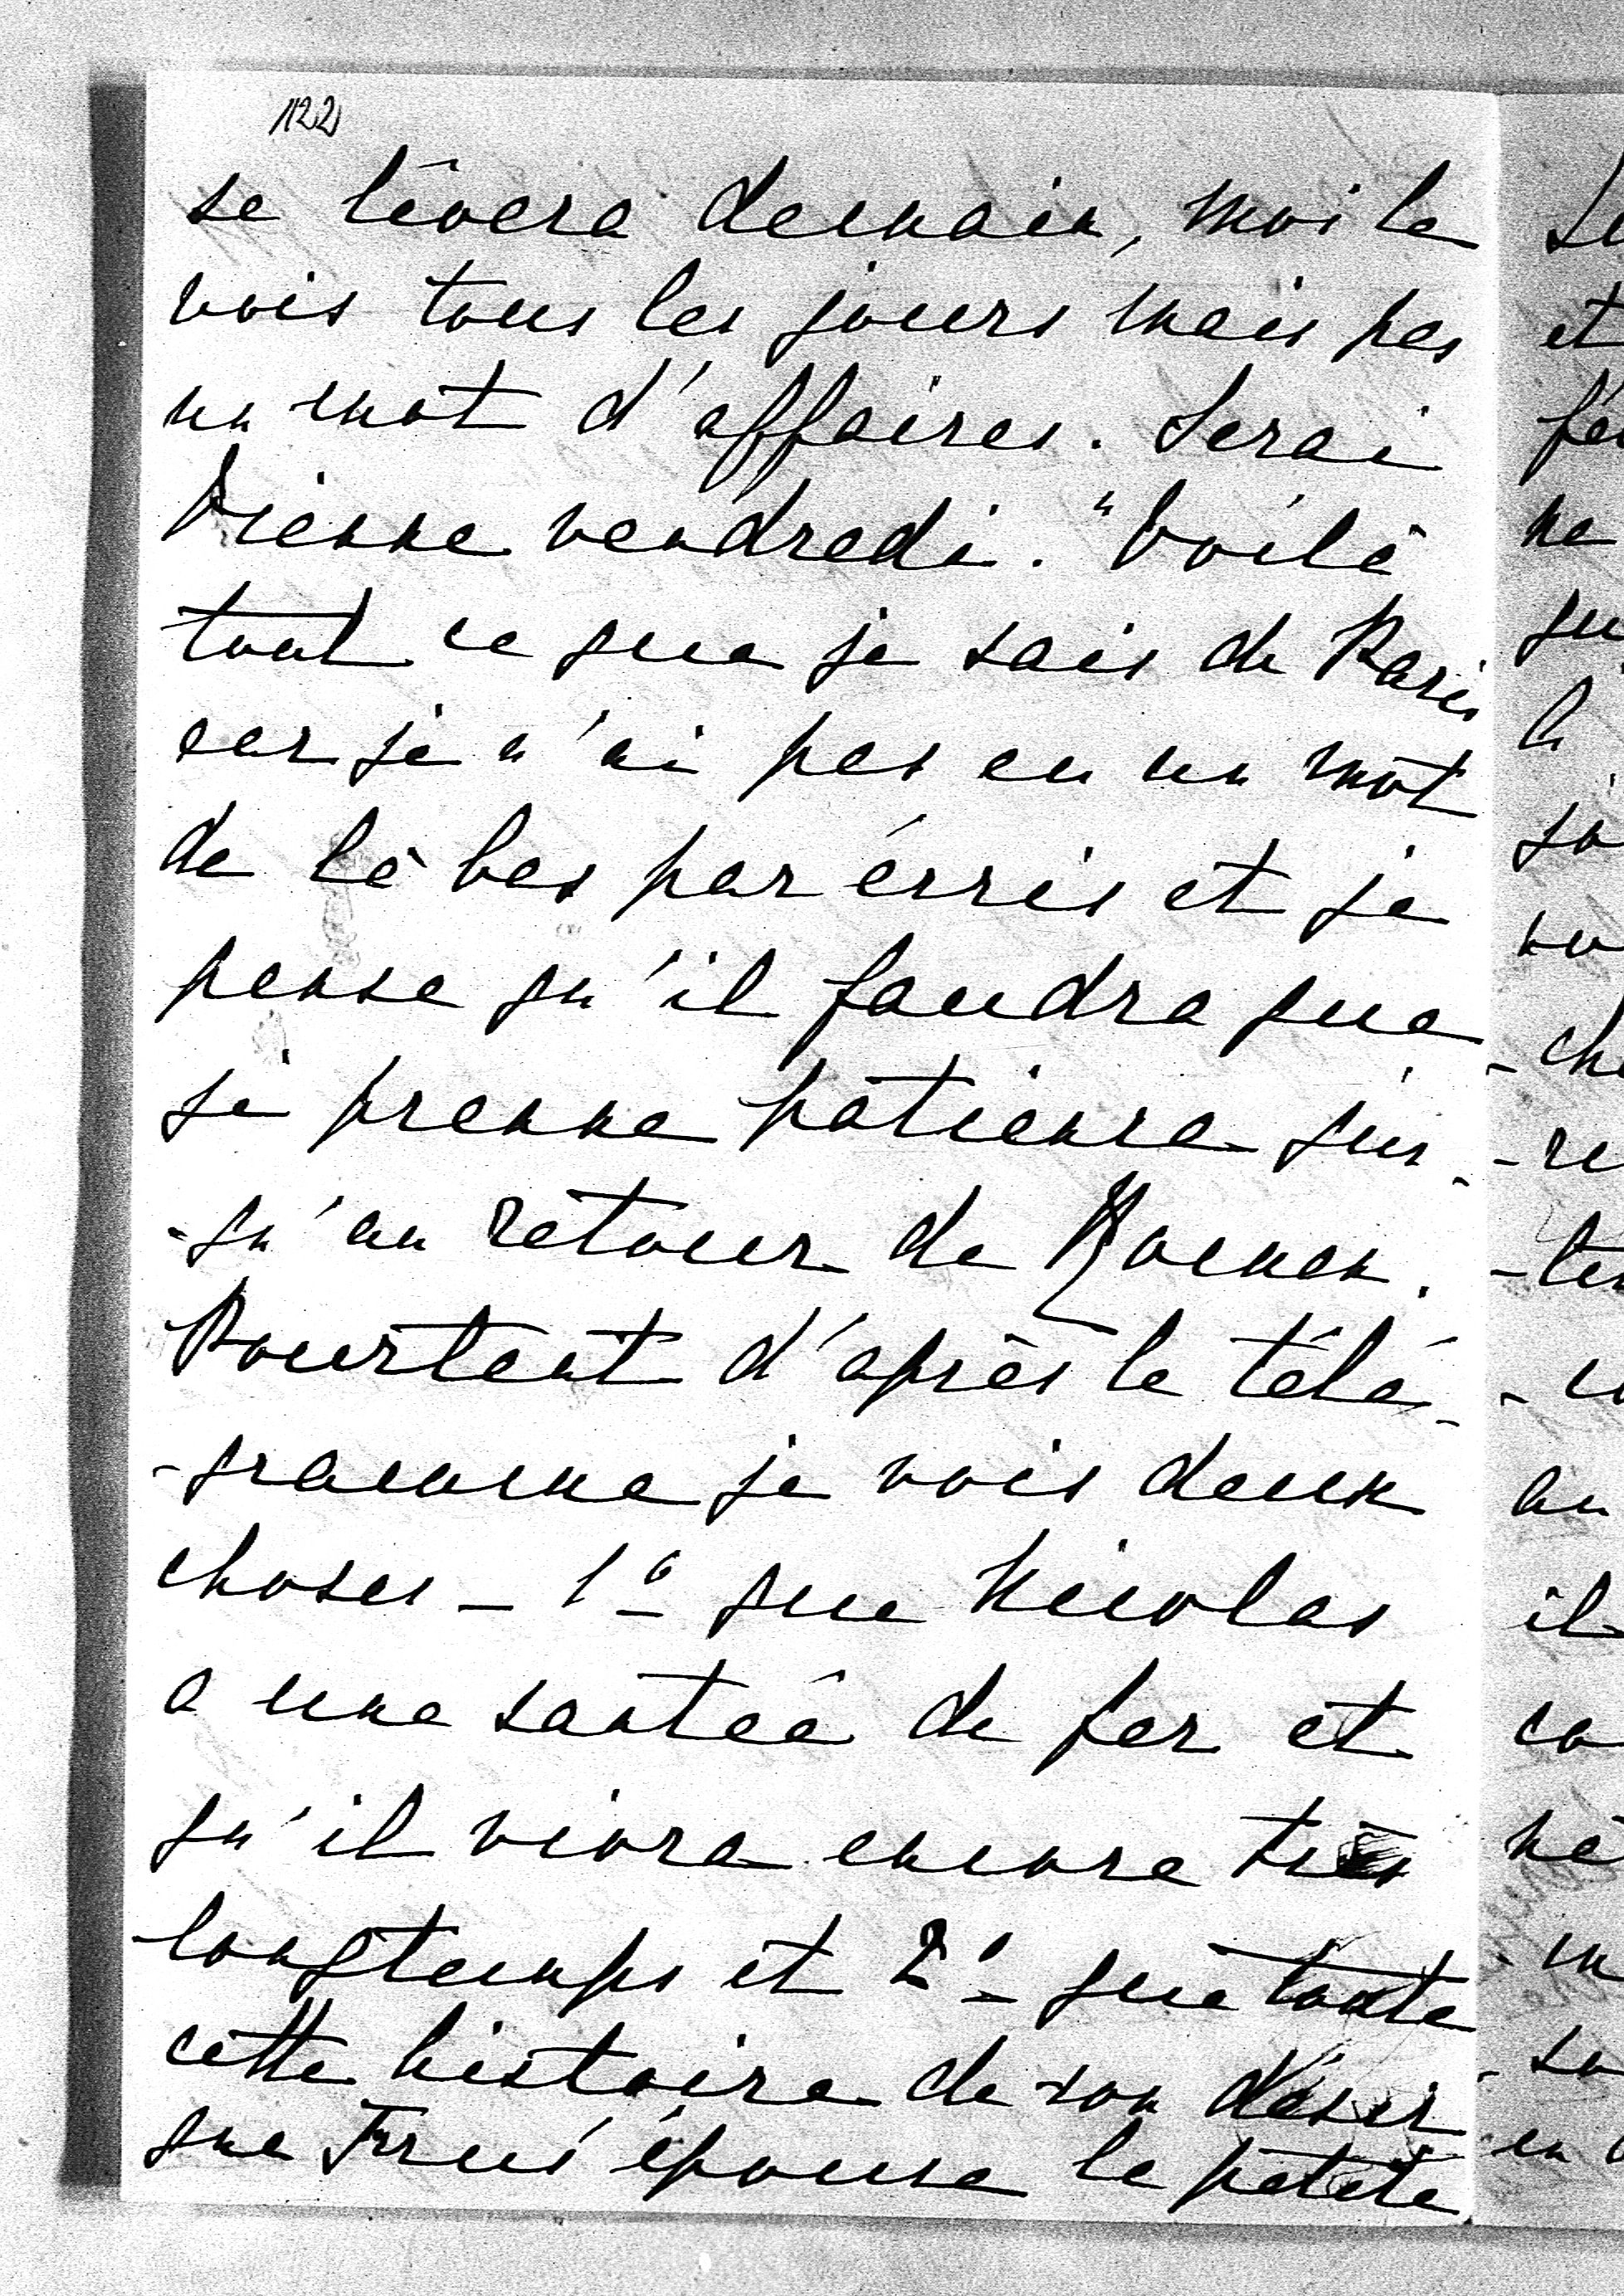 122
se lèvera demain, moi le
vois tous les jours mais pas
un mot d'affaires. Serai
Vienne vendredi." Voilà
tout ce que je sais de Paris
car je n'ai pas eu un mot
de là bas par écris et je
pense qu'il faudra que
je prenne patience jus-
-qu'au retour de
Pourtant d'après le télé-
-gramme je vois deux
choses - 1° que Nicolas
a une santée de fer et
qu'il vivra encore très
longtemps et 2° que toute
cette histoire de son désir
que épouse la petite